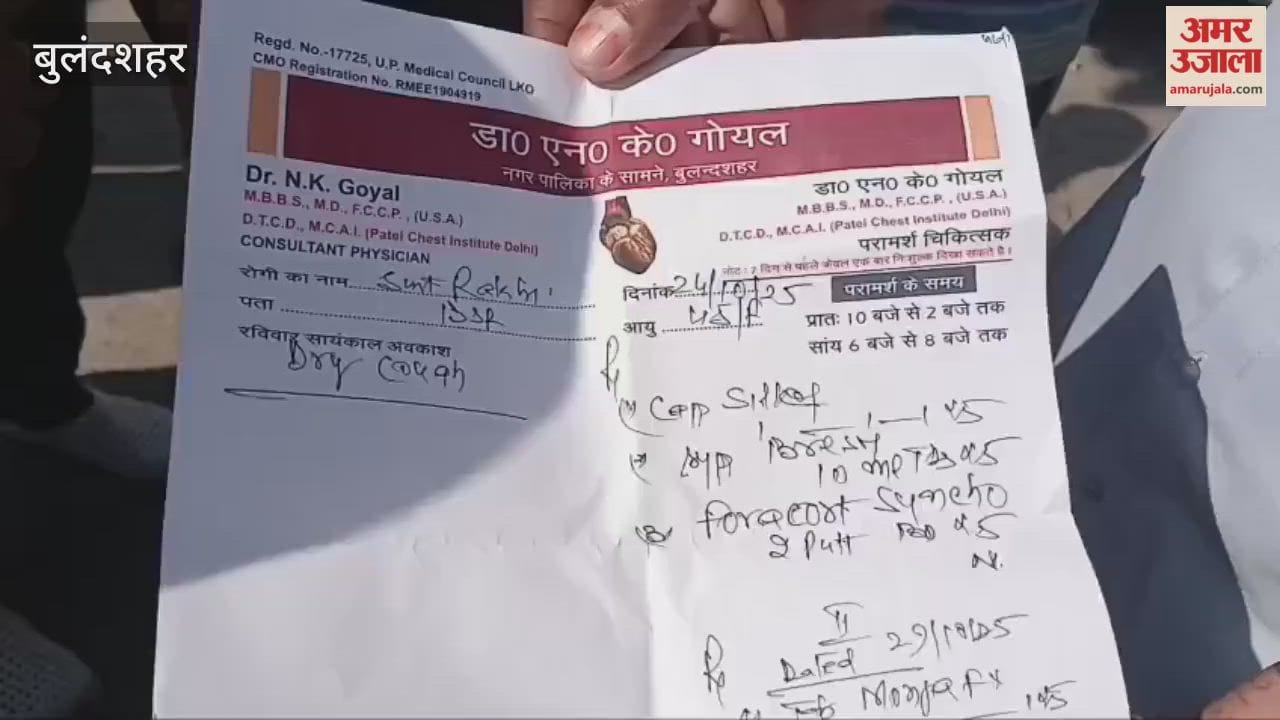 बुलंदशहर
अमर
उजाला
amarujala.com
Regd. No.-17725, U.P. Medical Council LKO
CMO Registration No. RMEE1904919
डा0 एन0 के0 गोयल
नगर पालिका के सामने, बुलन्दशहर
Dr. N.K. Goyal
M.B.B.S., M.D., F.C.C.P. , (U.S.A.)
D.T.C.D., M.C.A.I. (Patel Chest Institute Delhi)
CONSULTANT PHYSICIAN
डा0 एन0 के0 गोयल
M.B.B.S., M.D., F.C.C.P. , (U.S.A.)
D.T.C.D., M.C.A.I. (Patel Chest Institute Delhi)
परामर्श चिकित्सक
नोट : 7 दिन से पहले केवल एक बार निःशुल्क दिखा सकते है।
रोगी का नाम Smt
पता BSR
रविवार सायंकाल अवकाश
Dry Cough
दिनांक 24/10/25
आयु
परामर्श के समय
प्रातः 10 बजे से 2 बजे तक
सांय 6 बजे से 8 बजे तक
Cap
10 ml TDS x 5
Foracort Synchro
2 Puff BD x 5
II
Dated 29/10/25
x 5